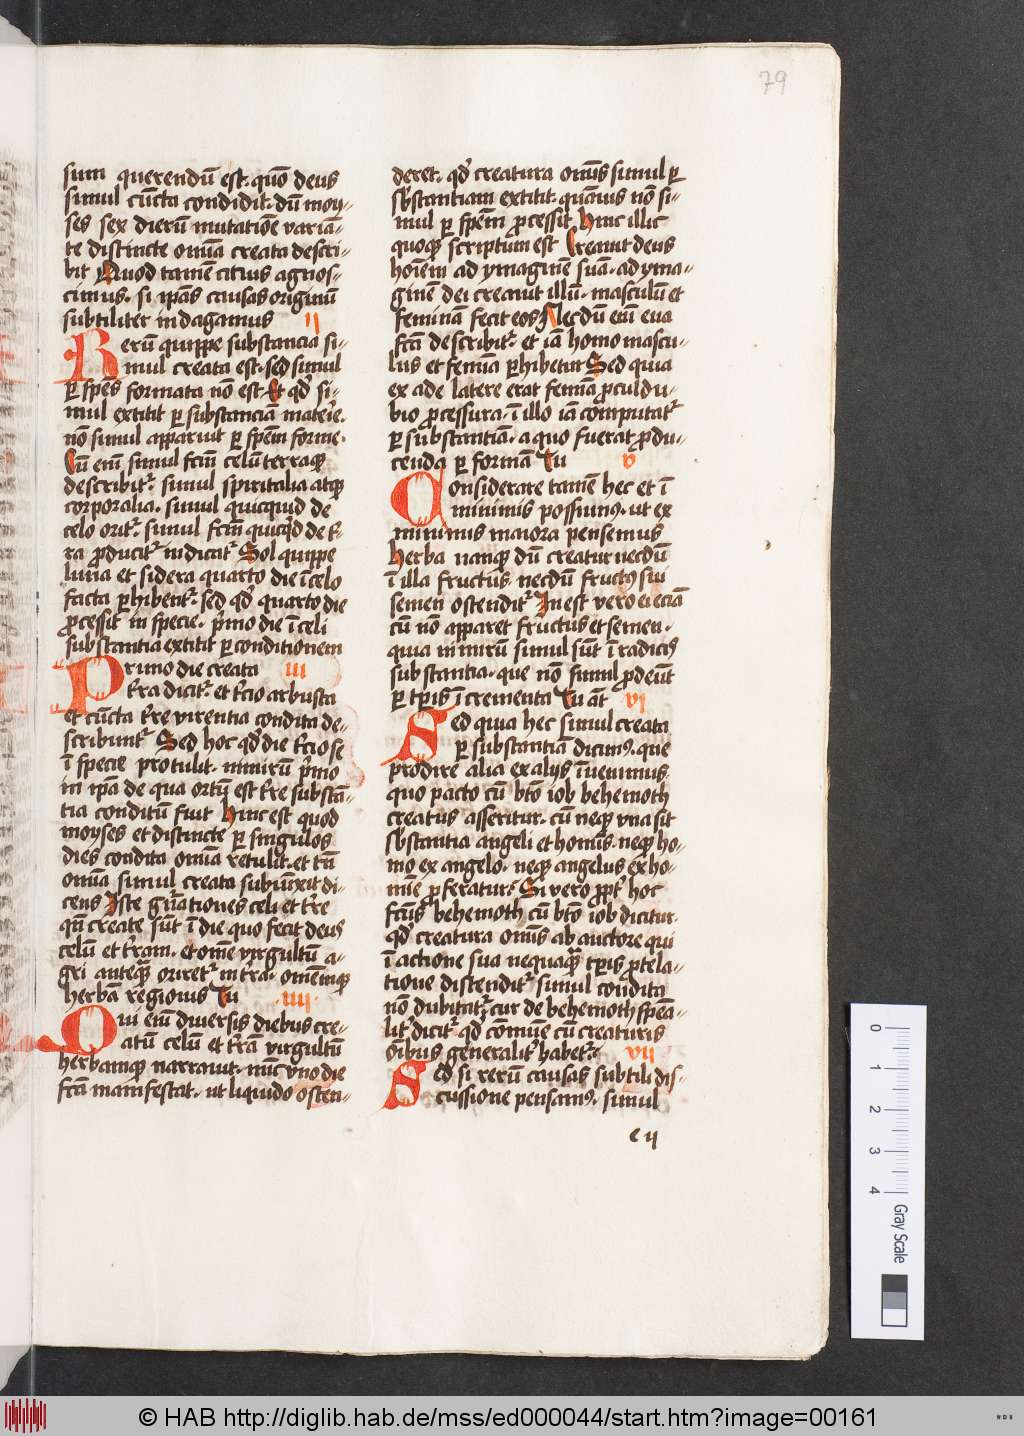 79
sum querendū est. quō deus
simul cūcta condidit. dū moy-
ses sex dierū mutatiōe variā-
te distincte om̄a creata descri-
bit Quod tamē citius agnos-
cimus. si ip̄as causas originū
subtiliter indagamus ij
Rerū quippe substancia si-
mul creata est. sed simul
ꝑ spēs formata nō est Et qd̛ si-
mul extitit ꝑ substanciā materie.
nō simul apparuit ꝑ spēm forme.
Cū em̄ simul fcm̄ celū terraqꝫ
describit᷑. simul spiritalia atqꝫ
corporalia. simul quicquid de
celo orit᷑. simul fcm̄ quicqͥd de t̛-
ra ꝓducit᷑ indicat᷑ Sol quippe
luna et sidera quarto die ī celo
facta ꝑhibent᷑. sed qd̛ quarto die
ꝓcessit in specie. pͥmo die ī celi
substantia extitit ꝑ conditionem
Primo die creata iii
t̛ra dicit᷑. et t̛cio arbusta
et cūcta t̛re virentia condita de-
scribunt᷑ Sed hoc qd̛ die t̛cio se
ī specie protulit. nimirū pͥmo
in ip̄a de qua ortū est t̛re substā-
tia conditū fuit Hinc est quod
moyses et distincte ꝑ singulos
dies condita om̄ia retulit. et tn̄
om̄ia simul creata subiūxit di-
cens Iste gn̄ationes celi et t̛re
qn̄ create sūt ī die quo fecit deus
celū et t̛ram. et om̄e virgultū a-
gri anteqꝫ oriret᷑ in t̛ra. omēmqꝫ
herbā regionis Tu iiii
Qui em̄ diversis diebus cre-
atū celū et t̛rā virgultū
herbamqꝫ narravit. nūc vno die
fc̄a manifestat. ut liquido osten-
deret. qd̛ creatura om̄is simul ꝑ
sb̛stantiam extitit. quāuis nō si-
mul ꝑ spēm ꝓcessit Hinc illic
quoqꝫ scriptum est Creauit deus
hoīem ad ymaginē suā. ad yma-
ginē dei creauit illū. masculū et
feminā fecit eos Necdū em̄ eua
fc̄a describit᷑. et iā homo mascu-
lus et femīa ꝑhibetur Sed quia
ex ade latere erat femīa ꝓculdu-
bio ꝓcessura. ī illo iā computat᷑
ꝑ substantiā. a quo fuerat ꝓdu-
cenda ꝑ formā Tu v
Considerare tamē hec et ī
minimis possumꝰ. ut ex
minimis maiora pensemus
Herba nanqꝫ dū creatur necdū
ī illa fructus. necdū fructꝰ sui
semen ostendit᷑ Inest vero ei eciā
cū nō apparet fructus et semen.
quia nimirū simul sūt ī radicis
substantia. que nō simul ꝓdeūt
ꝑ tp̄is īcrementa Tu at̄ vi
Sed quia hec simul creata
ꝑ substantiā dicimꝰ. que
prodire alia ex alijs īuenimus
quo pacto cū bt̄o iob behemoth
creatus asseritur. cū neqꝫ vna sit
sb̛stantia angeli et homīs. neqꝫ ho-
mo ex angelo. neqꝫ angelus ex ho-
mīe ꝓferatur. Si vero ꝓpt̛ hoc
fcūs behemoth cū bt̄o iob dicitur.
qd̛ creatura om̄is ab auctore qui
ī actione sua nequaqꝫ tp̄is ꝓtela-
tione distendit᷑ simul condita
nō dubitat᷑. cur de behemoth spēa-
lit̛ dicit᷑ qd̛ cōmūe cū creaturis
om̄ibus generalit̛ habet᷑. vii
Sed si rerū causas subtili dis-
cussione pensamꝰ. simul
c ij
0 1 2 3 4
Gray Scale
© HAB http://diglib.hab.de/mss/ed000044/start.htm?image=00161
WDB